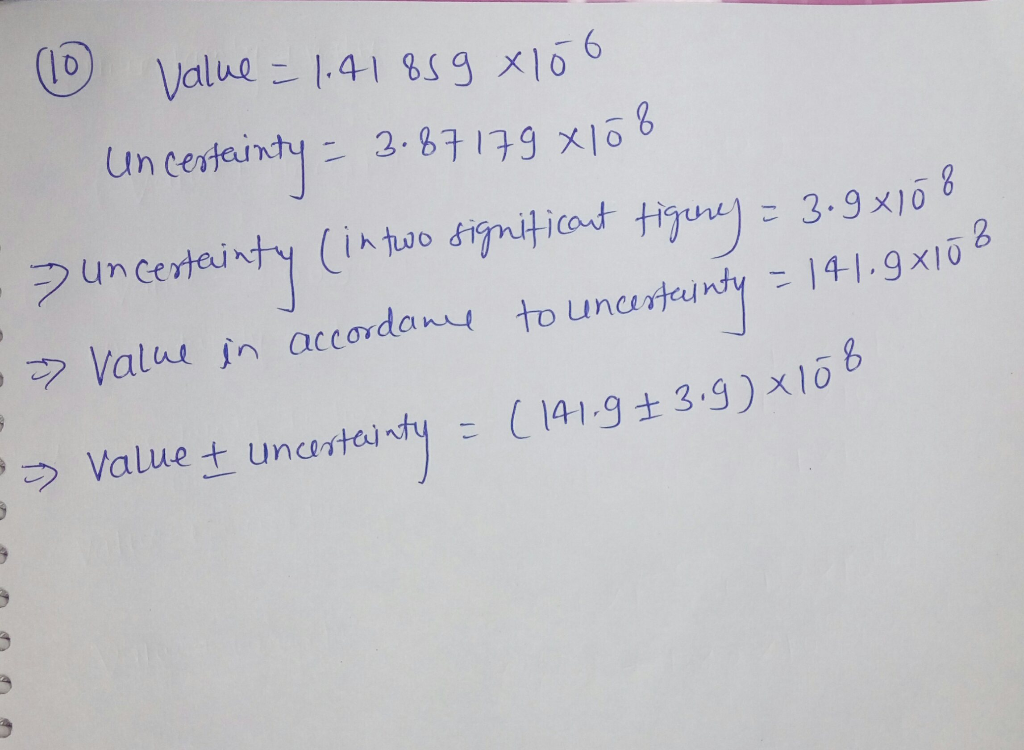 (10) Value = 1.41 859 × 10⁻⁶
Uncertainty = 3.87179 × 10⁻⁸
⇒ Uncertainty (in two significant figures = 3.9 × 10⁻⁸
⇒ Value in accordance to uncertainty = 141.9 × 10⁻⁸
⇒ Value ± Uncertainty = (141.9 ± 3.9) × 10⁻⁸